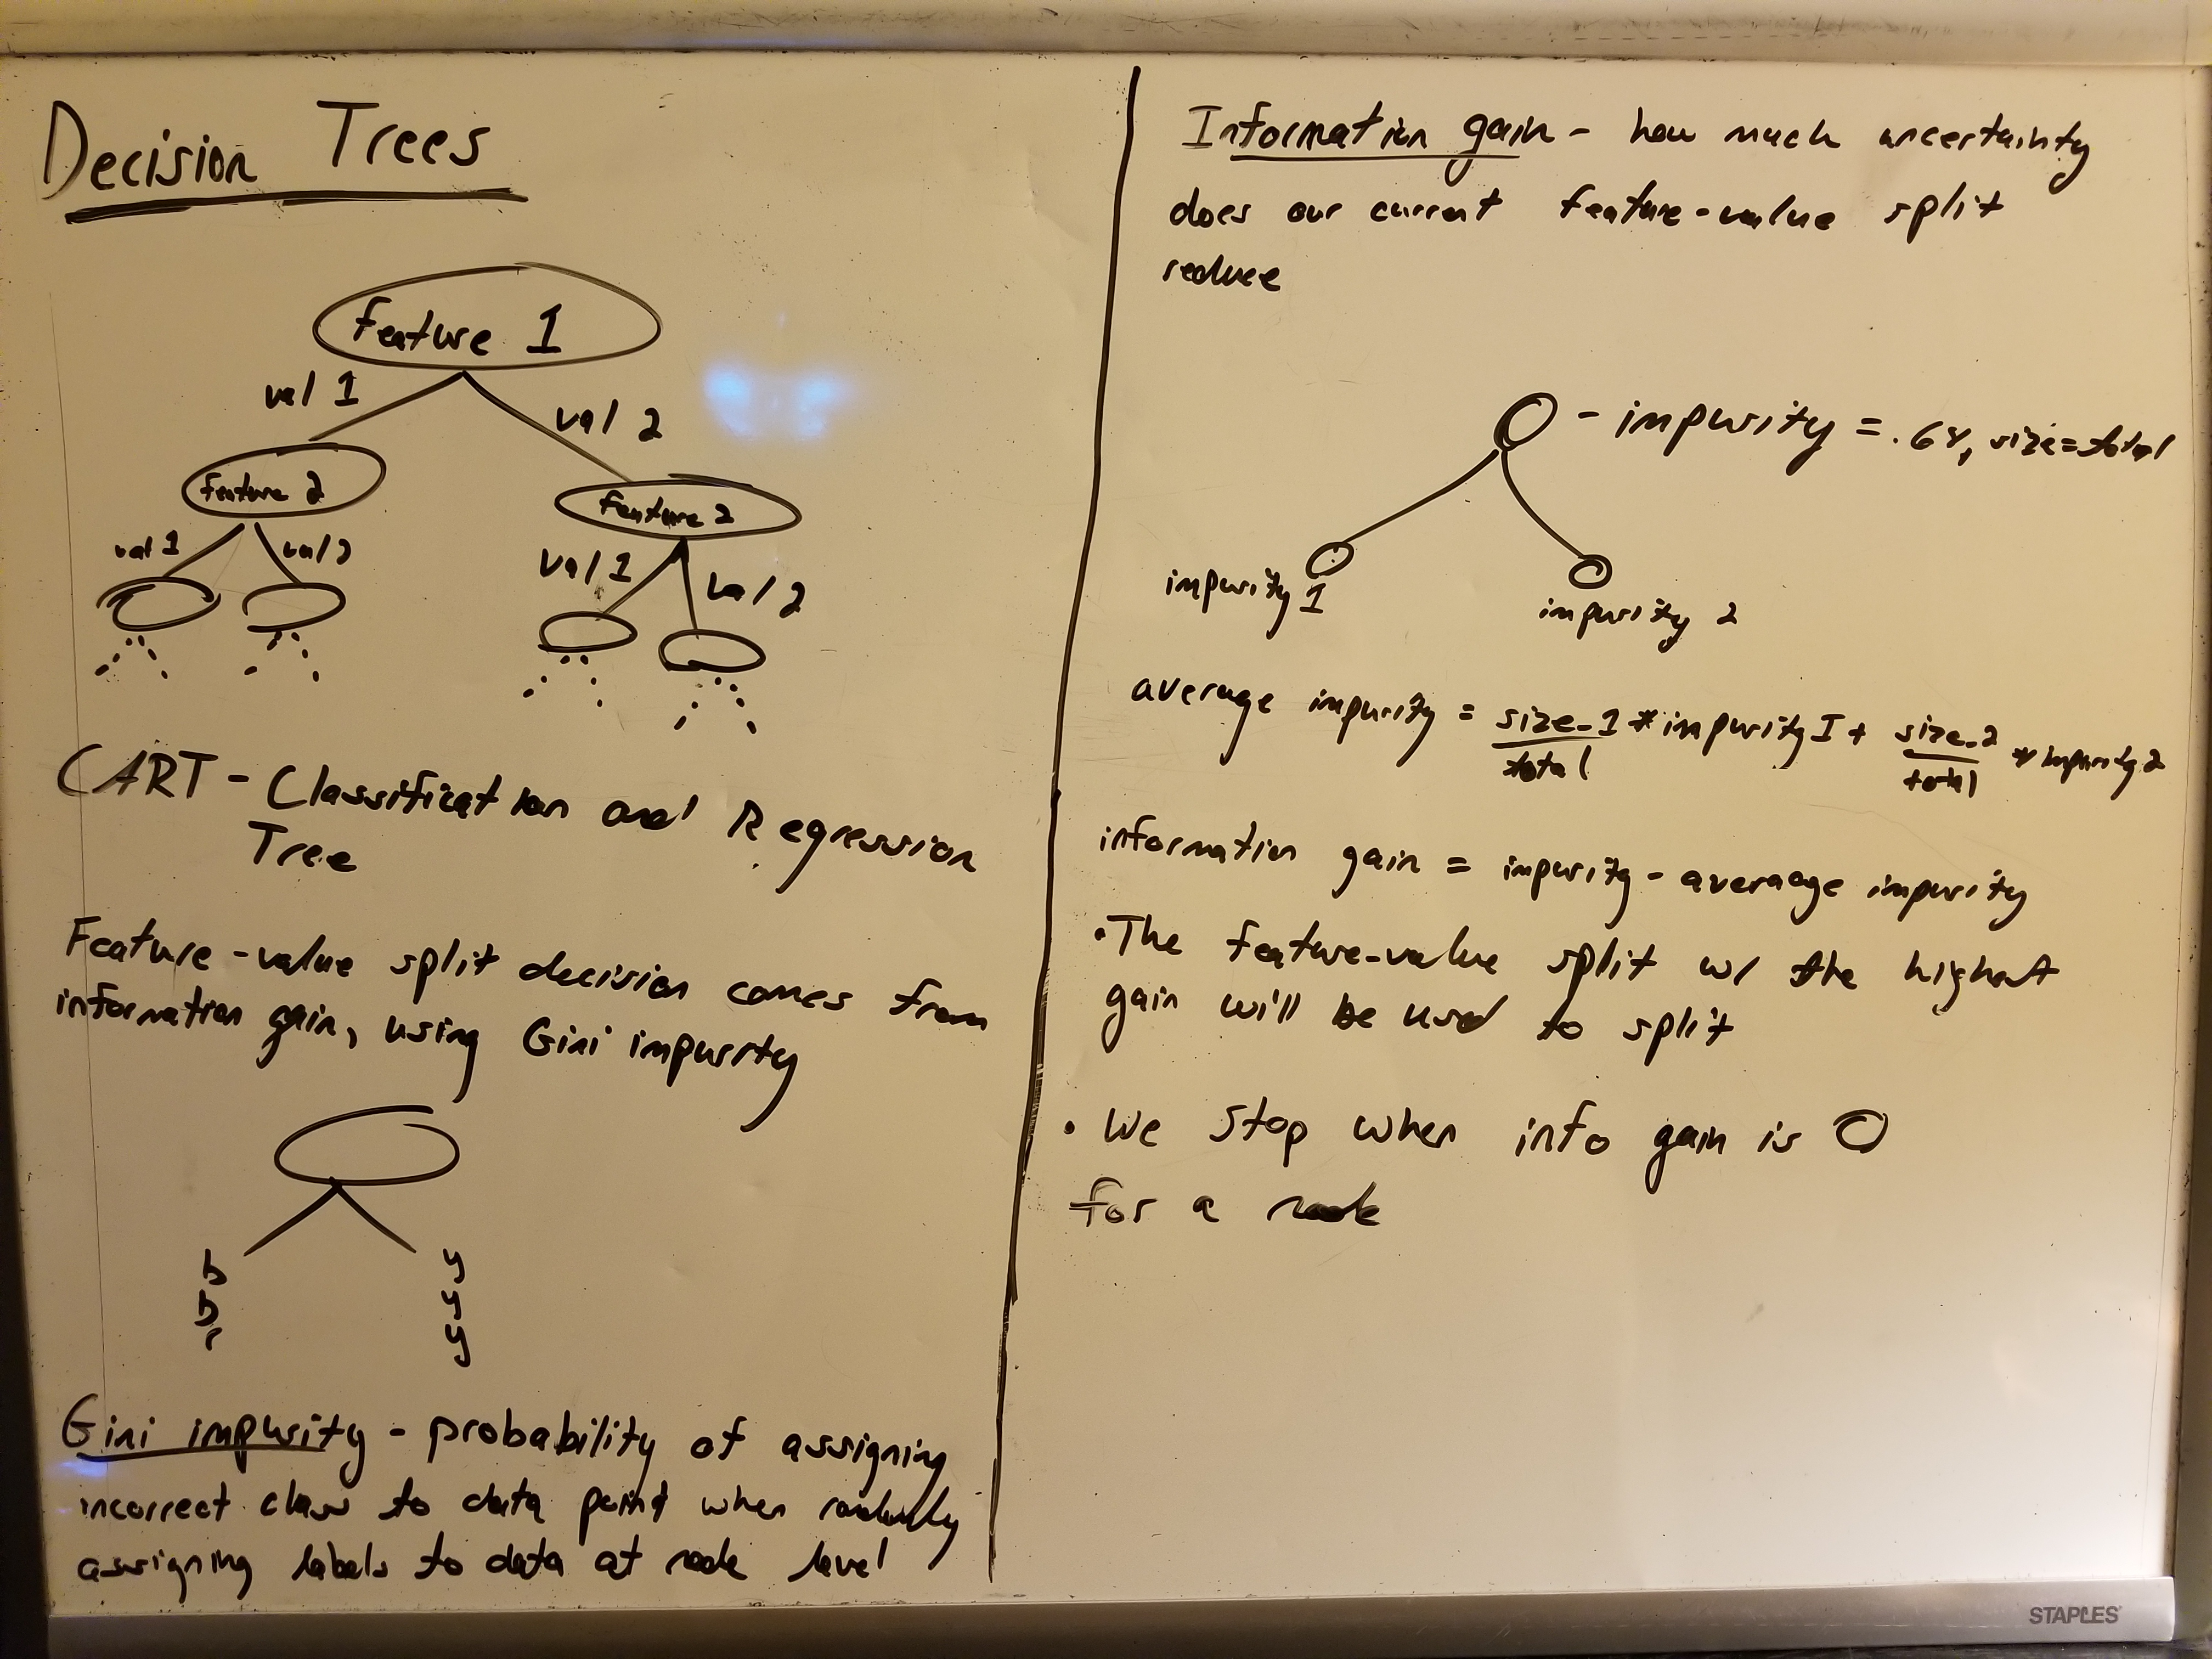 Decision Trees
Feature 1
val 1
val 2
Feature 2
Feature 2
val 1
val 2
val 1
val 2
CART - Classification and Regression
Tree
Feature-value split decision comes from
information gain, using Gini impurity
b
b
r
y
y
y
Gini impurity - probability of assigning
incorrect class to data point when randomly
assigning labels to data at node level
Information gain - how much uncertainty
does our current feature-value split
reduce
- impurity = .64, size=total
impurity 1
impurity 2
average impurity = size_1/total * impurity 1 + size_2/total * impurity 2
information gain = impurity - averaoge impurity
• The feature-value split w/ the highest
gain will be used to split
• We stop when info gain is 0
for a node
STAPLES